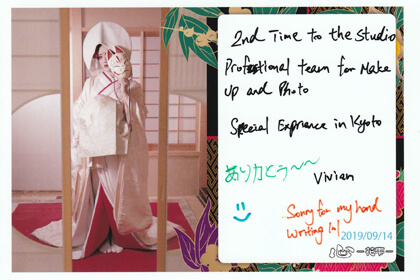 2nd Time to the Studio
Profestional team for Make
up and Photo
Special Expriance in Kyoto
ありカとう〜〜
Vivian
Sorry for my hand
writing lol
2019/09/14